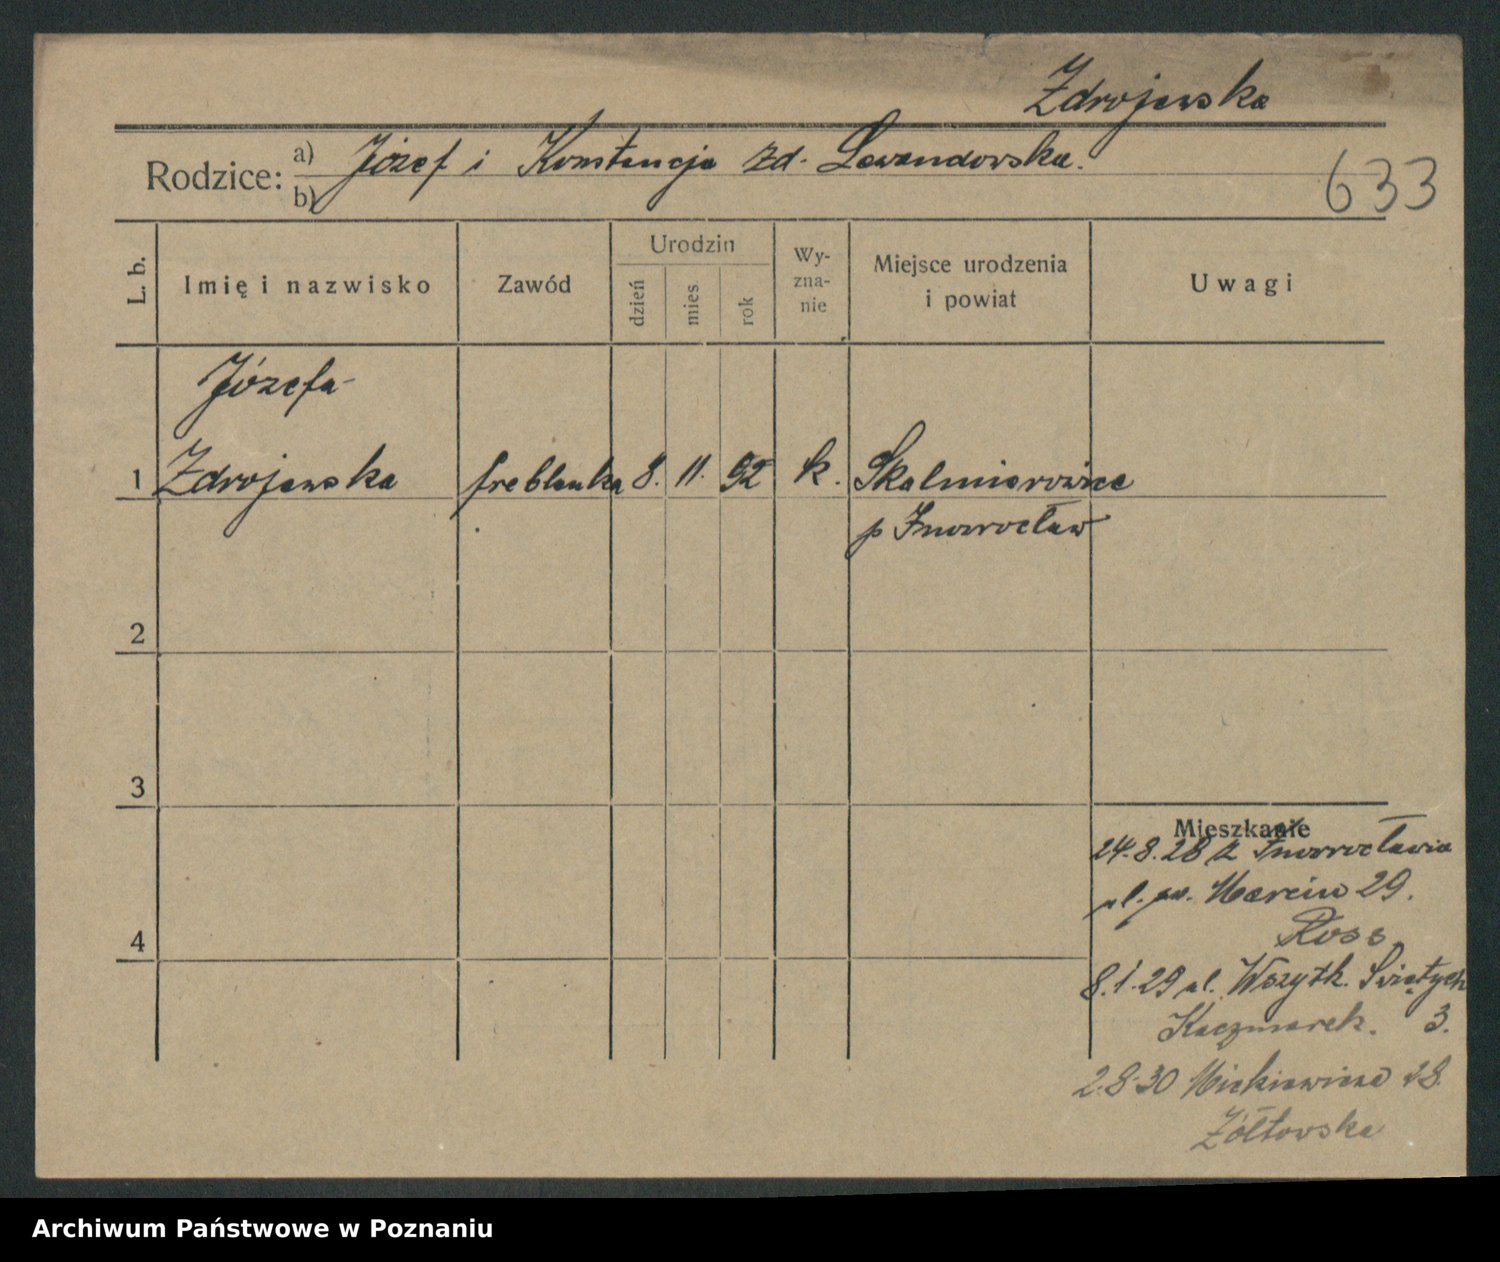 Zdrojewska
Rodzice: a) Józef i Konstancja zd. Lewandowska.
b)
633
L. b.
Imię i nazwisko
Zawód
Urodzin
dzień
mies.
rok
Wy-
zna-
nie
Miejsce urodzenia
i powiat
Uwagi
Józefa
1 Zdrojewska freblanka 8. 11. 92 k. Skalmierowice
p Inowrocław
2
3
4
Mieszkanie
24.8.28 z Inowrocławia
ul. św. Marcin 29.
Ross
8.1.29 ul. Wszystk. Świętych
Kaczmarek. 3.
2.8.30 Mickiewicza 28.
Żółtowska
Archiwum Państwowe w Poznaniu